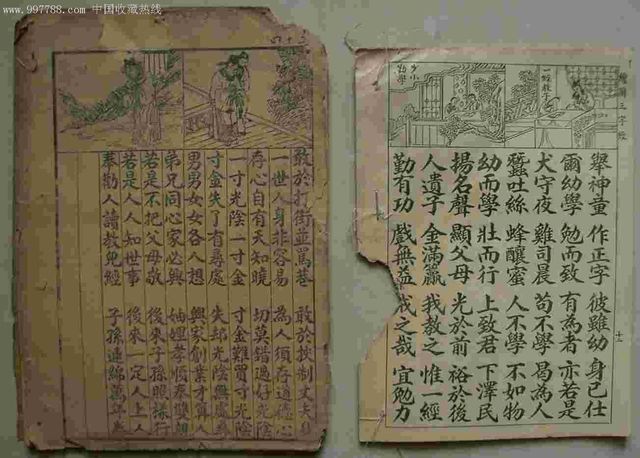 www.997788.com 中国收藏热线
繪圖三字經
十一
一經教子
少小勤學
舉神童 作正字 彼雖幼 身已仕
爾幼學 勉而致 有為者 亦若是
犬守夜 雞司晨 苟不學 曷為人
蠶吐絲 蜂釀蜜 人不學 不如物
幼而學 壯而行 上致君 下澤民
揚名聲 顯父母 光於前 裕於後
人遺子 金滿籯 我教之 惟一經
勤有功 戲無益 戒之哉 宜勉力
敢於打街並罵巷 敢於挾制丈夫身
一世人身非容易 為人須存道德心
存心自有天知曉 切莫錯過好光陰
一寸光陰一寸金 寸金難買寸光陰
寸金失了有尋處 失却光陰無處尋
男男女女各人想 興家創業才算人
弟兄同心家必興 妯娌孝順奉雙親
若是不把父母敬 後來子孫照樣行
若是人人知世事 後來一定人上人
奉勸人讀教兒經 子孫連綿萬年